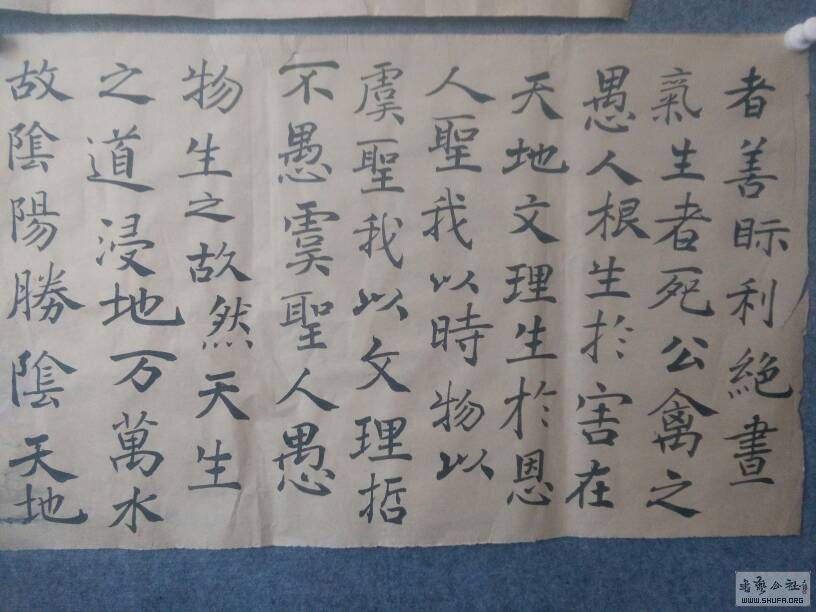 者善眎利絕晝
氣生者死公禽之
愚人根生於害在
天地文理生於恩
人聖我以時物以
虞聖我以文理哲
不愚虞聖人愚
物生之故然天生
之道浸地万萬水
故陰陽勝陰天地
書藝公社
WWW.SHUFA.ORG